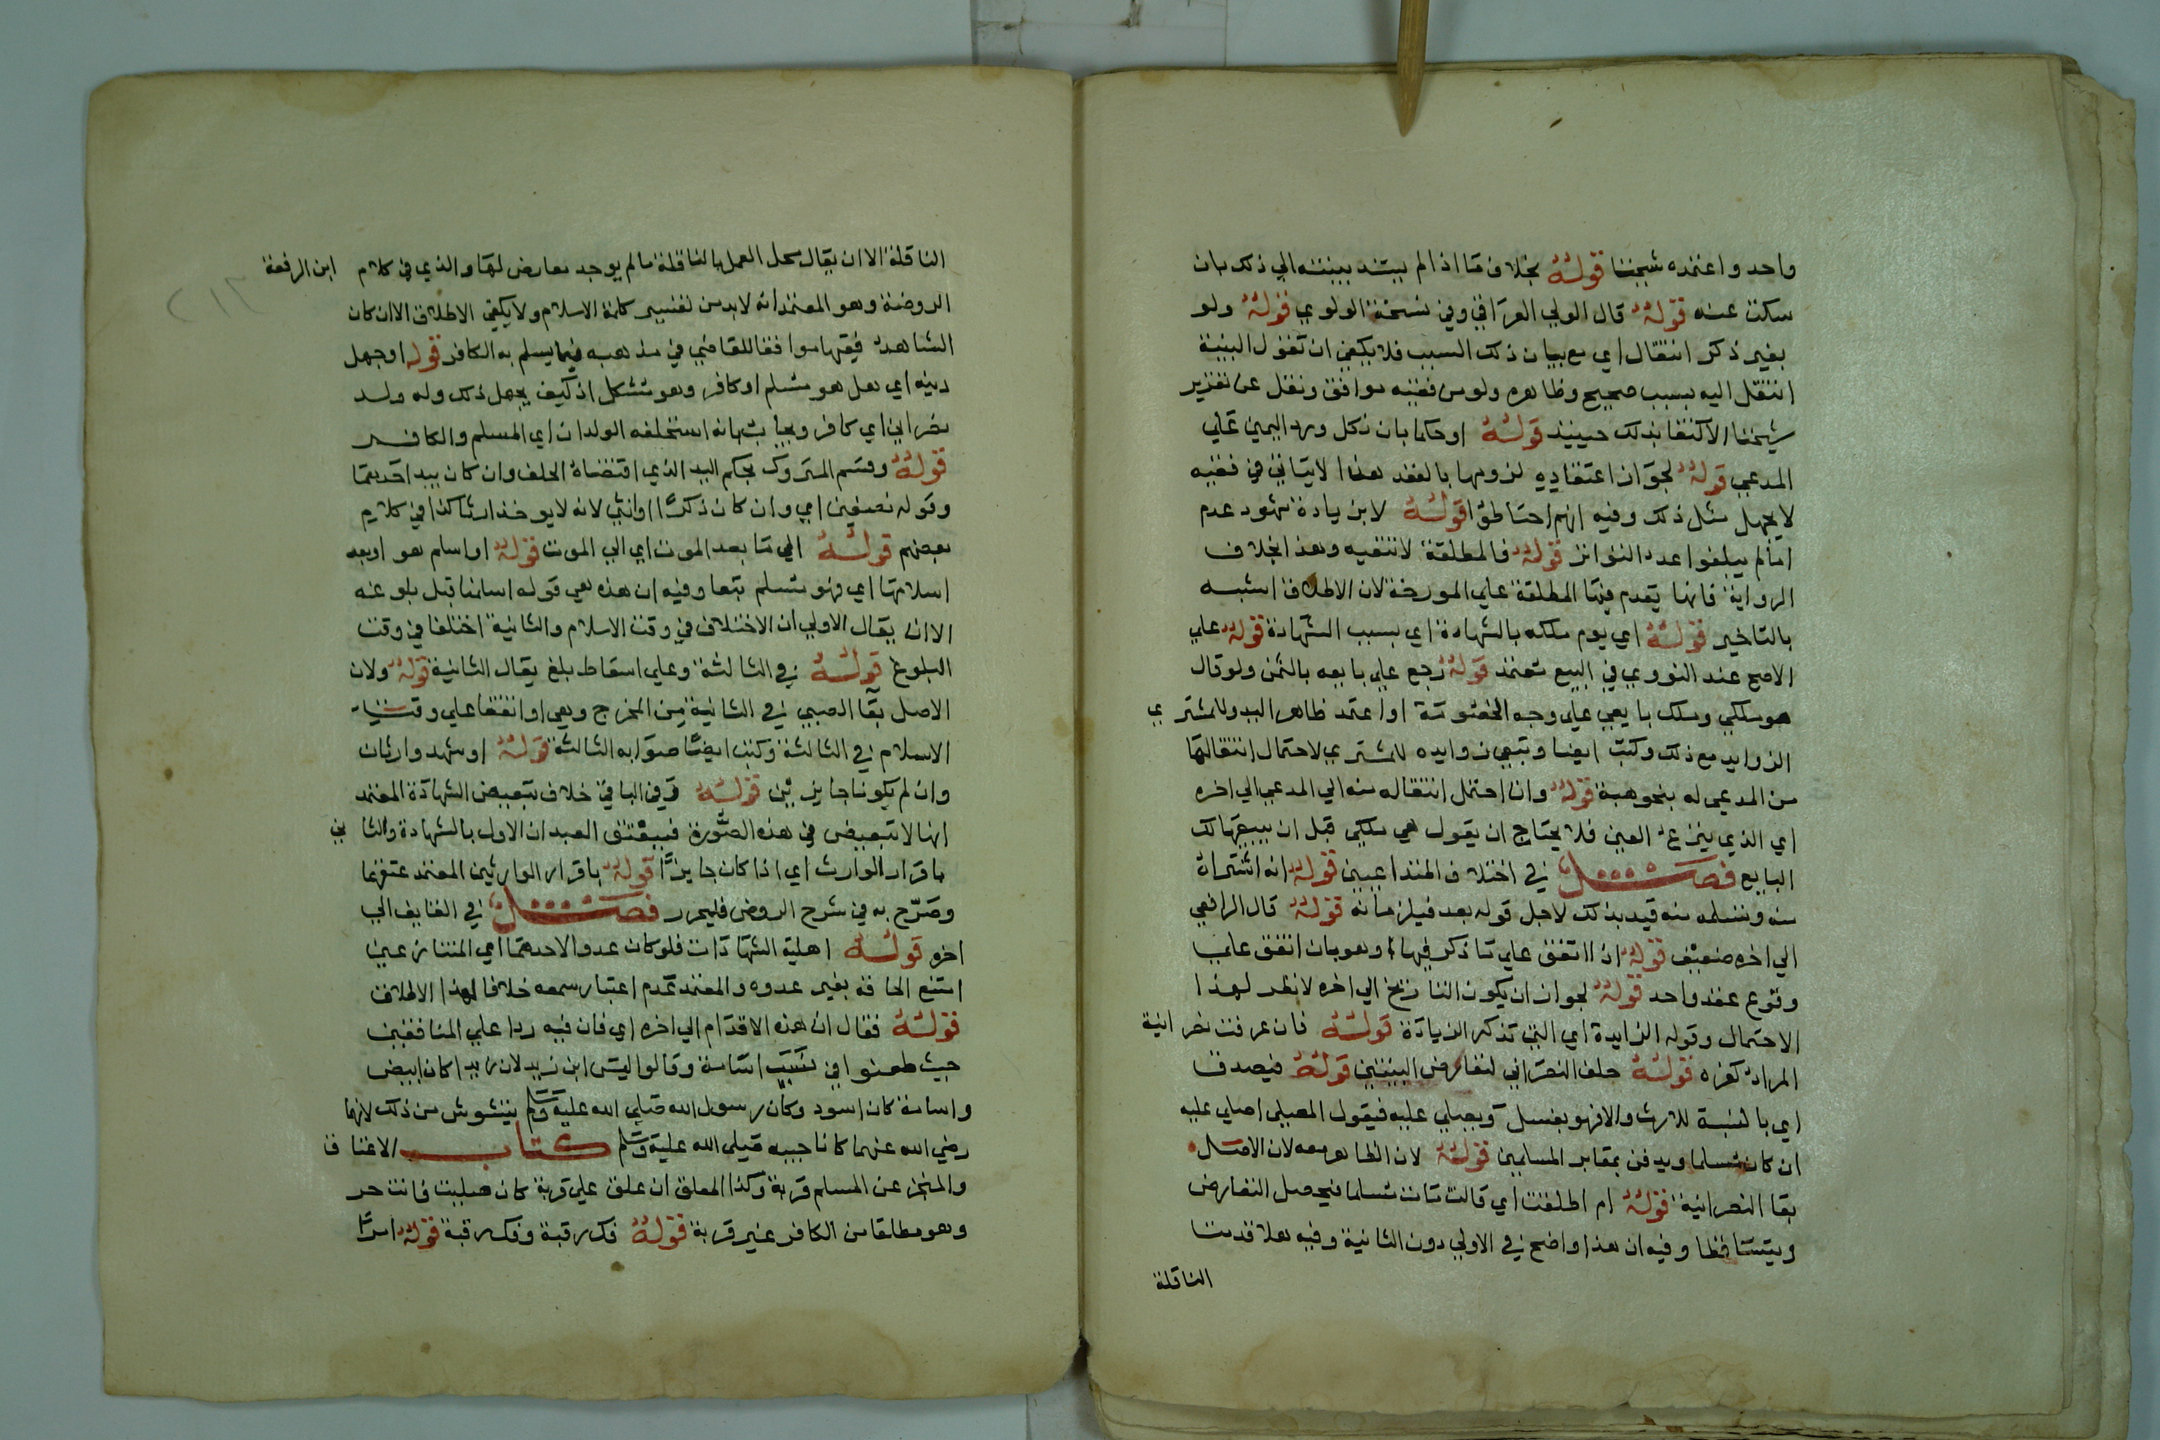 واحد واعتمده شيخنا قوله بخلاف ما اذا لم يسند بينته الي ذلك بان
سكتت عنه قوله قال الولي العراقي وفي نسخة الولوي قوله ولو
بغير ذكر انتقال اي مع بيان ذلك السبب فلا يكفي ان تقول البينة
انتقل اليه بسبب صحيح وظاهره ولو من فقيه موافق ونقل عن تقرير
شيخنا الاكتفا بذلك حينيذ قوله او حكما بان نكل ورد اليمين علي
المدعي قوله لجواز اعتقاده لزومها بالعقد هذا لا ياتي في فقيه
لا يجهل مثل ذلك وفيه انهم احتاطوا قوله لا بزيادة شهود عدم
اما لم يبلغوا عدد التواتر قوله فالمطلقة لا تنفيه وهذا بخلاف
الرواية فانها يقدم فيها المطلقة علي المورخة لان الاطلاق اشبه
بالتاخير قوله اي يوم ملكه بالشهادة اي بسبب الشهادة قوله علي
الاصح عند النووي في البيع معتمد قوله رجع علي بايعه بالثمن ولو قال
هو ملكي وملك بايعي علي وجه الخصومة او اعتمد ظاهر اليد وللمشتري
الزوايد مع ذلك وكتب ايضا وتبقي زوايده للمشتري لاحتمال انتقالها
من المدعي له بنحو هبة قوله وان احتمل انتقاله منه الي المدعي الي اخره
اي الذي ينزع العين فلا يحتاج ان يقول هي ملكي قبل ان يبيعها لك
البايع فصل في اختلاف المتداعيين قوله انه اشتراه
منه وتسلمه منه قيد بذلك لاجل قوله بعد فيلزمانه قوله قال الرافعي
الي اخره ضعيف قوله اذا اتفق علي ما ذكر فيها وهو بان اتفق علي
وقوع عقد واحد قوله لجواز ان يكون التاريخ الي اخره لا نظر لهذا
الاحتمال وقوله الزايدة اي التي تذكر الزيادة قوله فان عرفت نصرانية
المراد كفره قوله حلف النصراني لتعارض البينتين قوله فيصدق
اي بالنسبة للارث والا فهو يغسل ويصلي عليه فيقول المصلي اصلي عليه
ان كان مسلما ويدفن بمقابر المسلمين قوله لان الظاهر معه لان الاصل
بقا النصرانية قوله ام اطلقت اي قالت مات مسلما فيحصل التعارض
ويتساقطا وفيه ان هذا واضح في الاولي دون الثانية وفيه هلا قدمت
الناقلة
الناقلة الا ان يقال محل العمل بالناقلة ما لم يوجد معارض لها والذي في كلام ابن الرفعة
الروضة وهو المعتمد انه لا بد من تفسير كلمة الاسلام ولا يكفي الاطلاق الا ان كان
الشاهد فقيها موافقا للقاضي في مذهبه فيما يسلم به الكافر قوله او جهل
دينه اي هل هو مسلم او كافر وهو مشكل اذ كيف يجهل ذلك وله ولد
نصراني اي كافر ويجاب بانه استلحقه الولدان اي المسلم والكافر
قوله وقسم المتروك بحكم اليد الذي اقتضاه الحلف وان كان بيد احدهما
وقوله نصفين اي وان كان ذكرا وانثي لانه لا يوخذ ارثا كذا في كلام
بعضهم قوله الي ما بعد الموت اي الي الموت قوله او اسلم هو او بعد
اسلامها اي فهو مسلم تبعا وفيه ان هذه هي قوله اسلمنا قبل بلوغه
الا ان يقال الاولي ان الاختلاف في وقت الاسلام والثانية اختلفا في وقت
البلوغ قوله في الثالثة وعلي اسقاط بلغ يقال الثانية قوله ولان
الاصل بقا الصبي في الثانية من المخرج وهي او اتفقا علي وقت
الاسلام في الثالثة وكتب ايضا صوابه الثالثة قوله او شهد وارثان
وان لم يكونا جايزين قوله وفي الباقي خلاف تبعيض الشهادة المعتمد
انها لا تبعيض في هذه الصورة فيعتق العبدان الاول بالشهادة والثاني
باقرار الوارث اي اذا كان حايزا قوله باقرار الوارثين المعتمد عتقهما
وصرح به في شرح الروض فليحرر فصل في القايف الي
اخره قوله اهلية الشهادات فلو كان عدوا لاحدهما اي المتنازعين
امتنع الحاقه بغير عدوه والمعتمد عدم اعتبار سمعه خلافا لهذا الاطلاق
قوله فقال ان هذه الاقدام الي اخره اي فان فيه ردا علي المنافقين
حيث طعنوا في نسب اسامة وقالوا ليس ابن زيد لان زيدا كان ابيض
واسامة كان اسود وكان رسول الله صلي الله عليه وسلم يتشوش من ذلك لانهما
رضي الله عنهما كانا حبيبه صلي الله عليه وسلم كتاب الاعتاق
والمنجز عن المسلم قربة وكذا المعلق ان علق علي قربة كان صليت فانت حر
وهو مطلقا من الكافر غير قربة قوله فك رقبة وفك رقبة قوله امرا
٢١٣